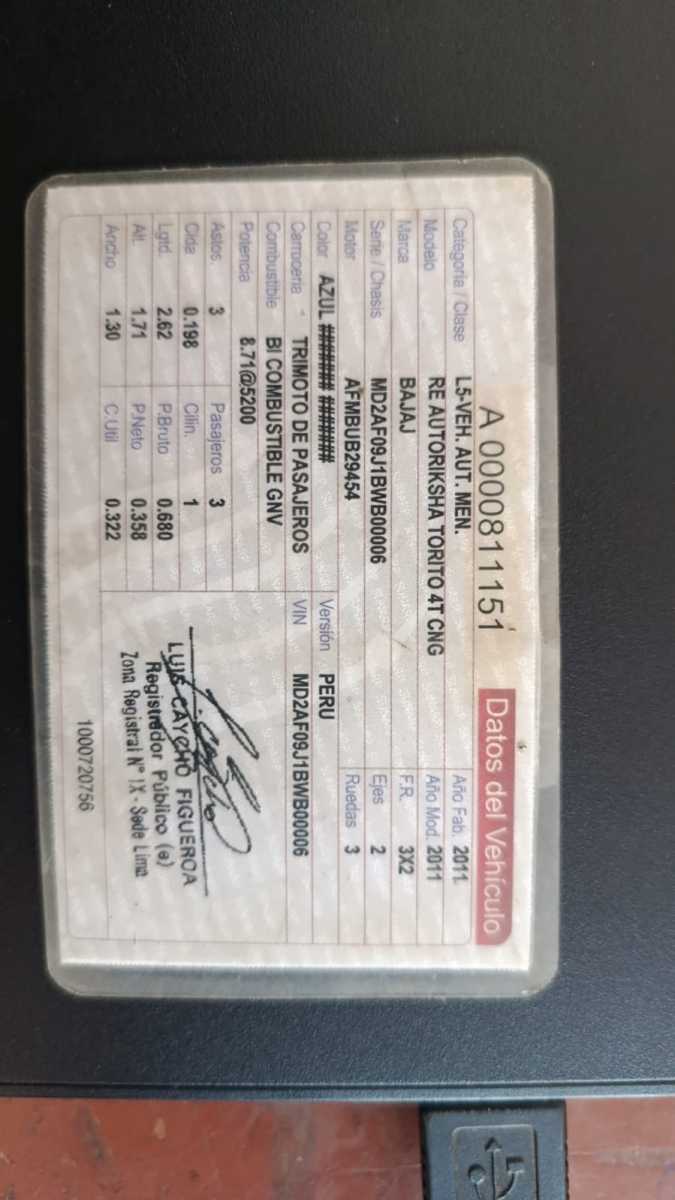 A 0000811151 Datos del Vehículo
Categoría / Clase L5-VEH. AUT. MEN. Año Fab. 2011
Modelo RE AUTORIKSHA TORITO 4T CNG Año Mod. 2011
Marca BAJAJ F.R. 3X2
Serie / Chasis MD2AF09J1BWB00006 Ejes 2
Motor AFMBUB29454 Ruedas 3
Color AZUL ####### ####### Versión PERU
Carrocería TRIMOTO DE PASAJEROS VIN MD2AF09J1BWB00006
Combustible BI COMBUSTIBLE GNV
Potencia 8.71@5200
Astos. 3 Pasajeros 3
Clda 0.198 Cilin. 1
Lgtd. 2.62 P.Bruto 0.680
Alt. 1.71 P.Neto 0.358
Ancho 1.30 C.Util 0.322
LUIS CAYCHO FIGUEROA
Registrador Público (e)
Zona Registral N° IX - Sede Lima
1000720756